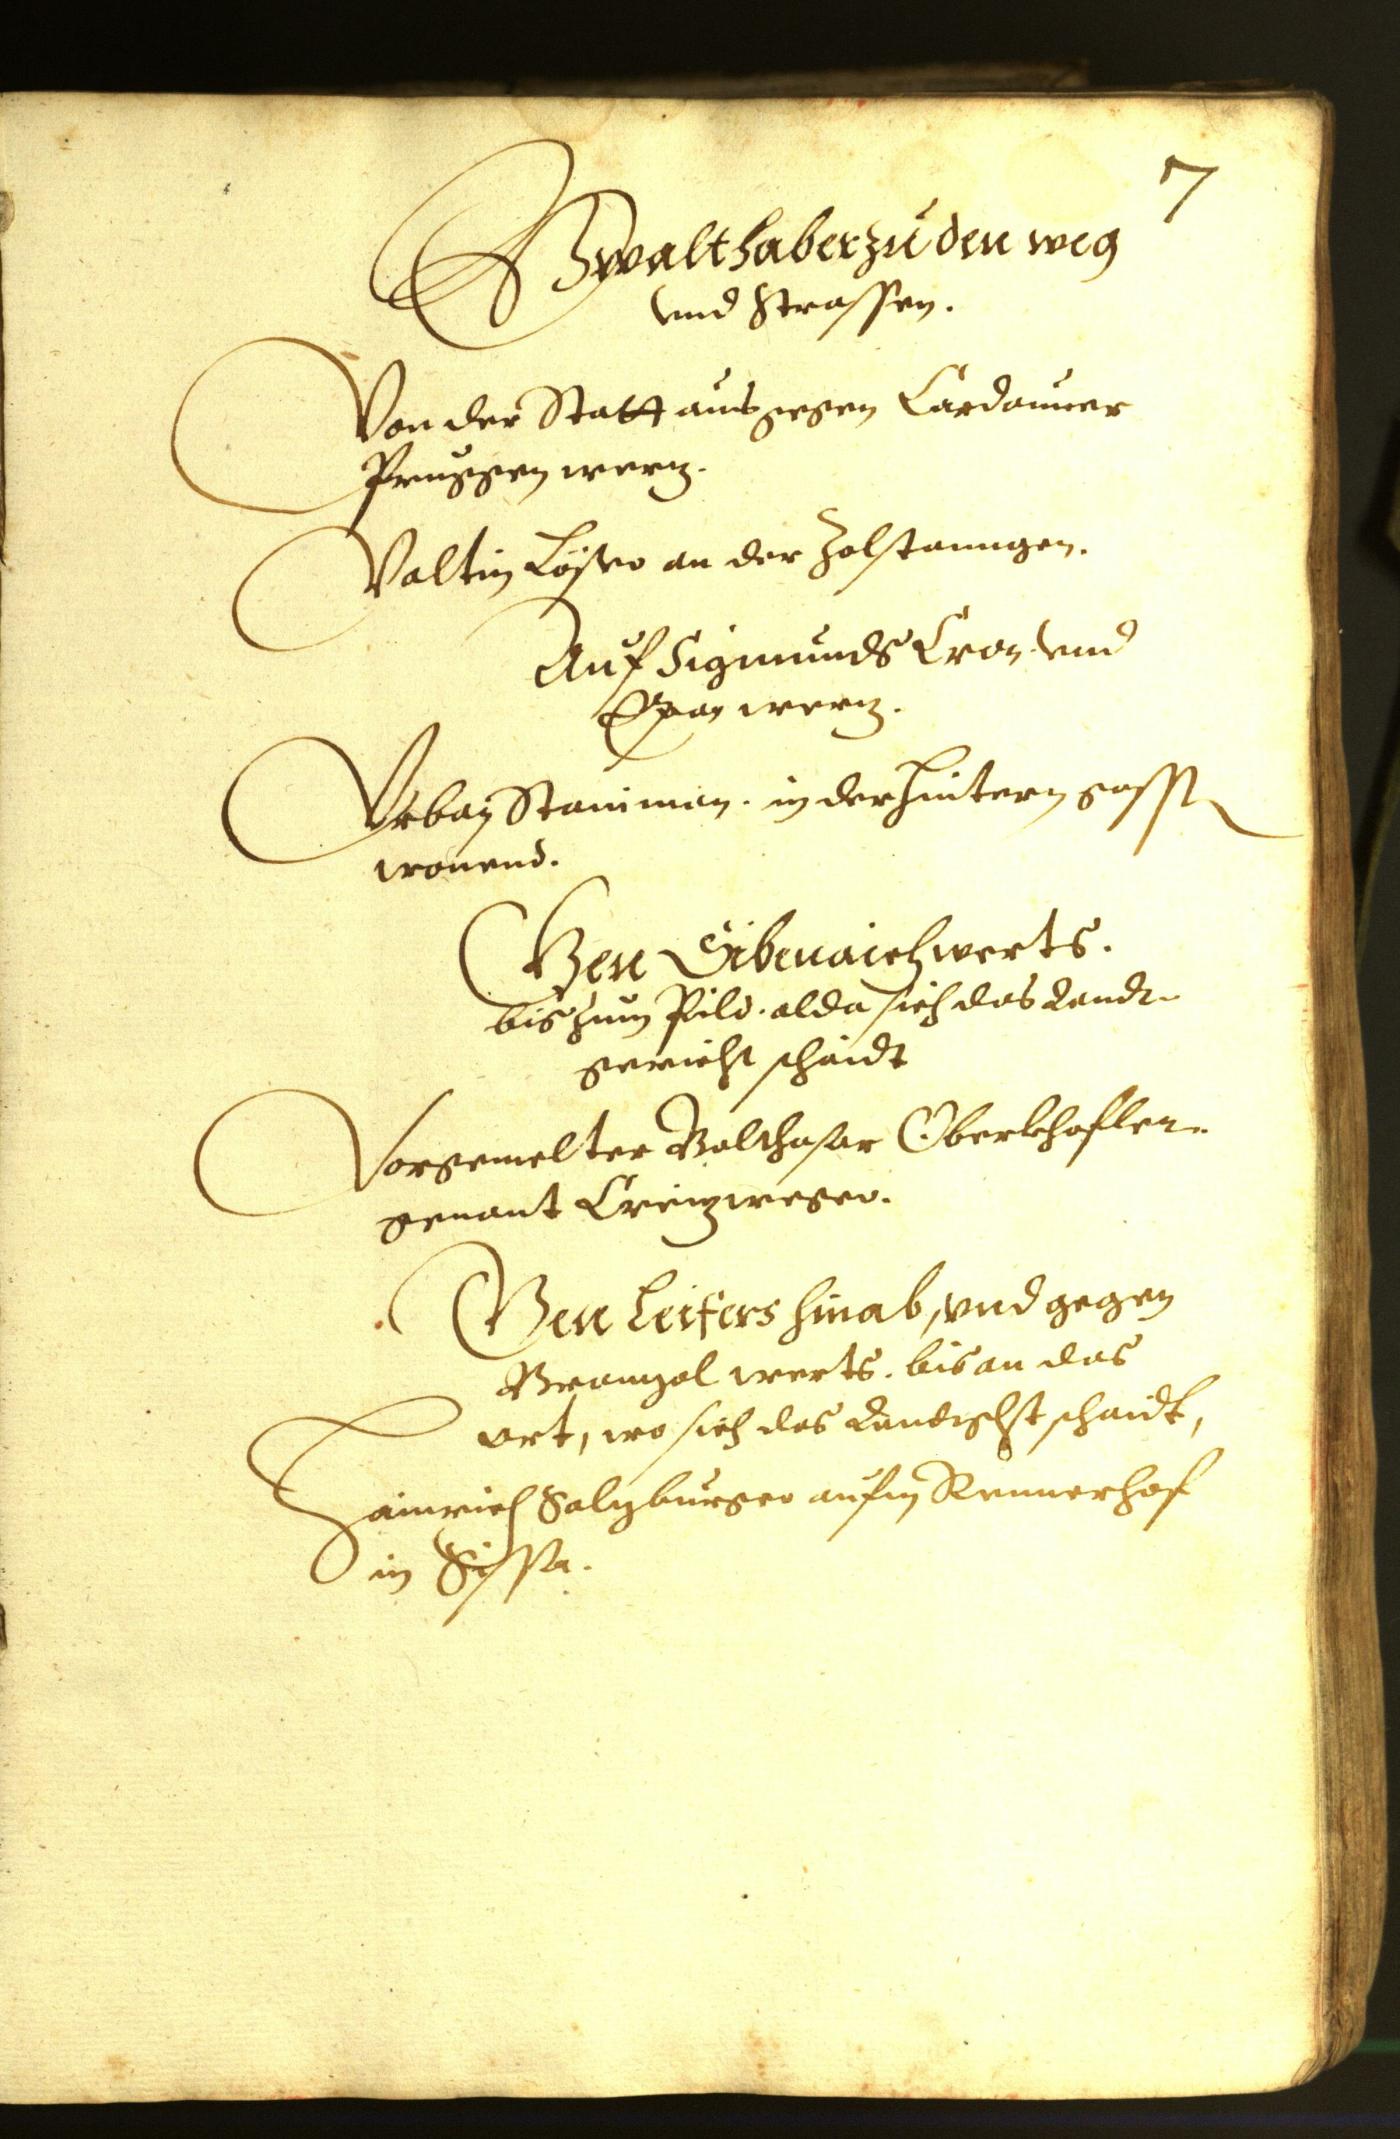 7
Gwalthaber zu den weg
vnd Strassen.
Von der Statt aus gegen Cardauner
Pruggen wertz.
Valtin Löser an der Zolstanngen.
Auf Sigmunds Cron vnd
Epan wertz.
Vrban Staniman. in der hintern gassen
wonend.
Gen Sibenaich werts.
bis zum Pild. alda sich das Landt-
gericht schaidt
Vorgemelter Balthasar Oberkhofler
genant Creizweger.
Gen Leifers hinab, vnd gegen
Branzol werts. bis an das
ort, wo sich das Landtgericht schaidt,
Hainrich Salzburger aufm Rennerhof
in